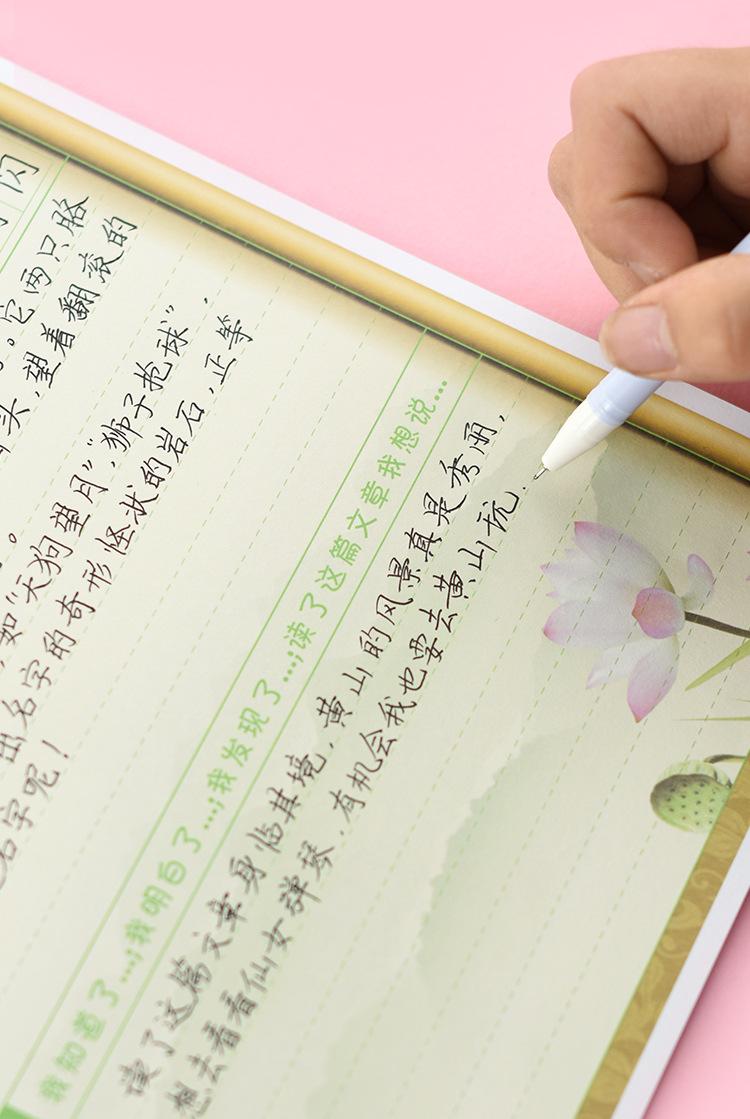 闪
它两只胳
头，望着翻滚的
。
如“天狗望月”，“狮子抢球”，
出名字的奇形怪状的岩石，正等
名字呢！
我知道了…；我明白了…；我发现了…；读了这篇文章我想说…
读了这篇文章身临其境，黄山的风景真是秀丽，
想去看看仙女弹琴，有机会我也要去黄山玩.